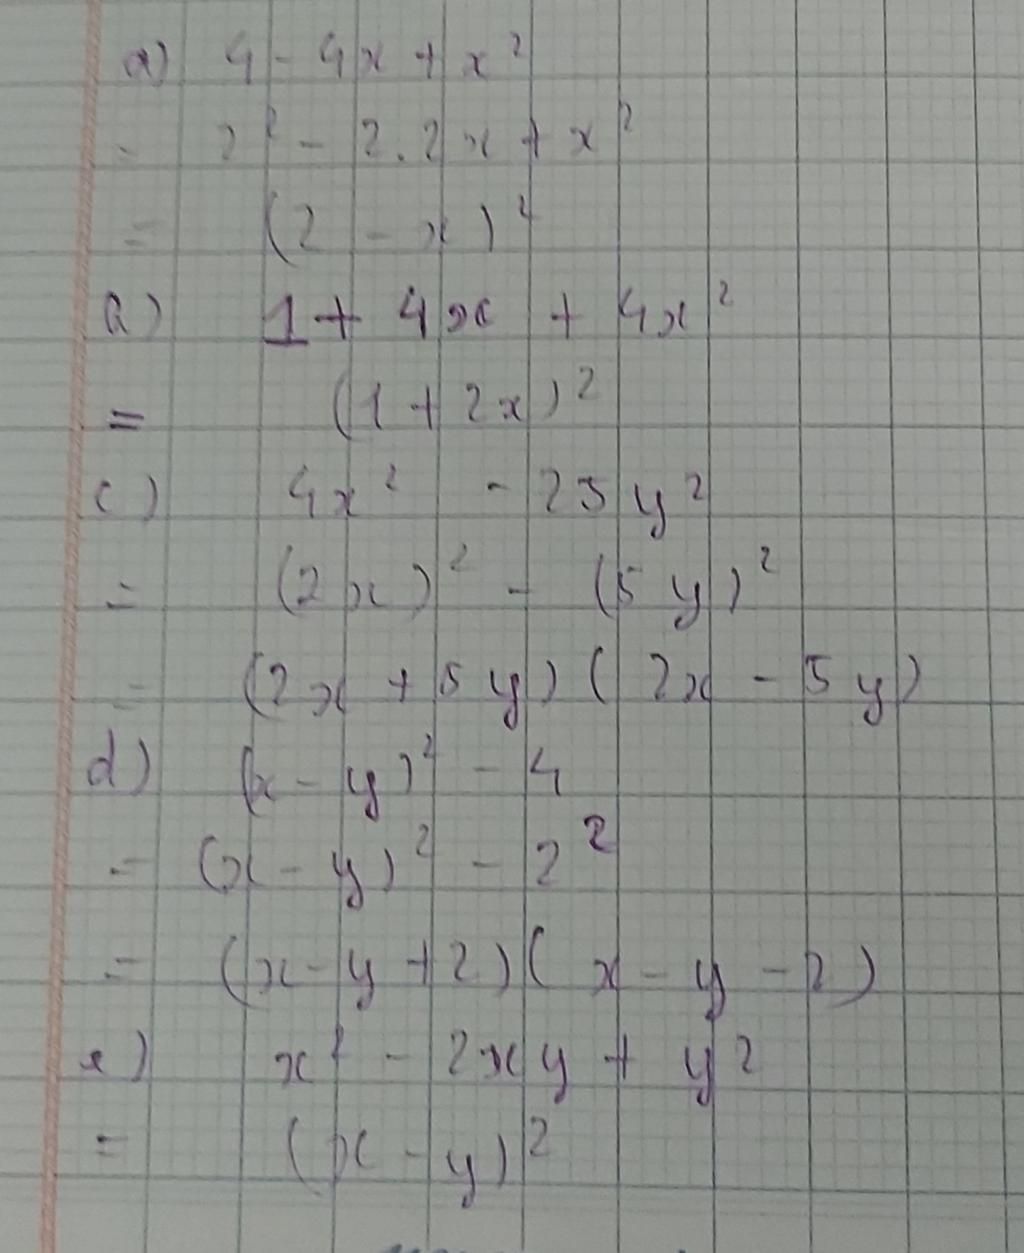 a) 4 - 4x + x²
= 2² - 2.2x + x²
= (2 - x)²
a) 1 + 4x + 4x²
= (1 + 2x)²
c) 4x² - 25y²
= (2x)² - (5y)²
= (2x + 5y)(2x - 5y)
d) (x - y)² - 4
= (x - y)² - 2²
= (x - y + 2)(x - y - 2)
e) x² - 2xy + y²
= (x - y)²